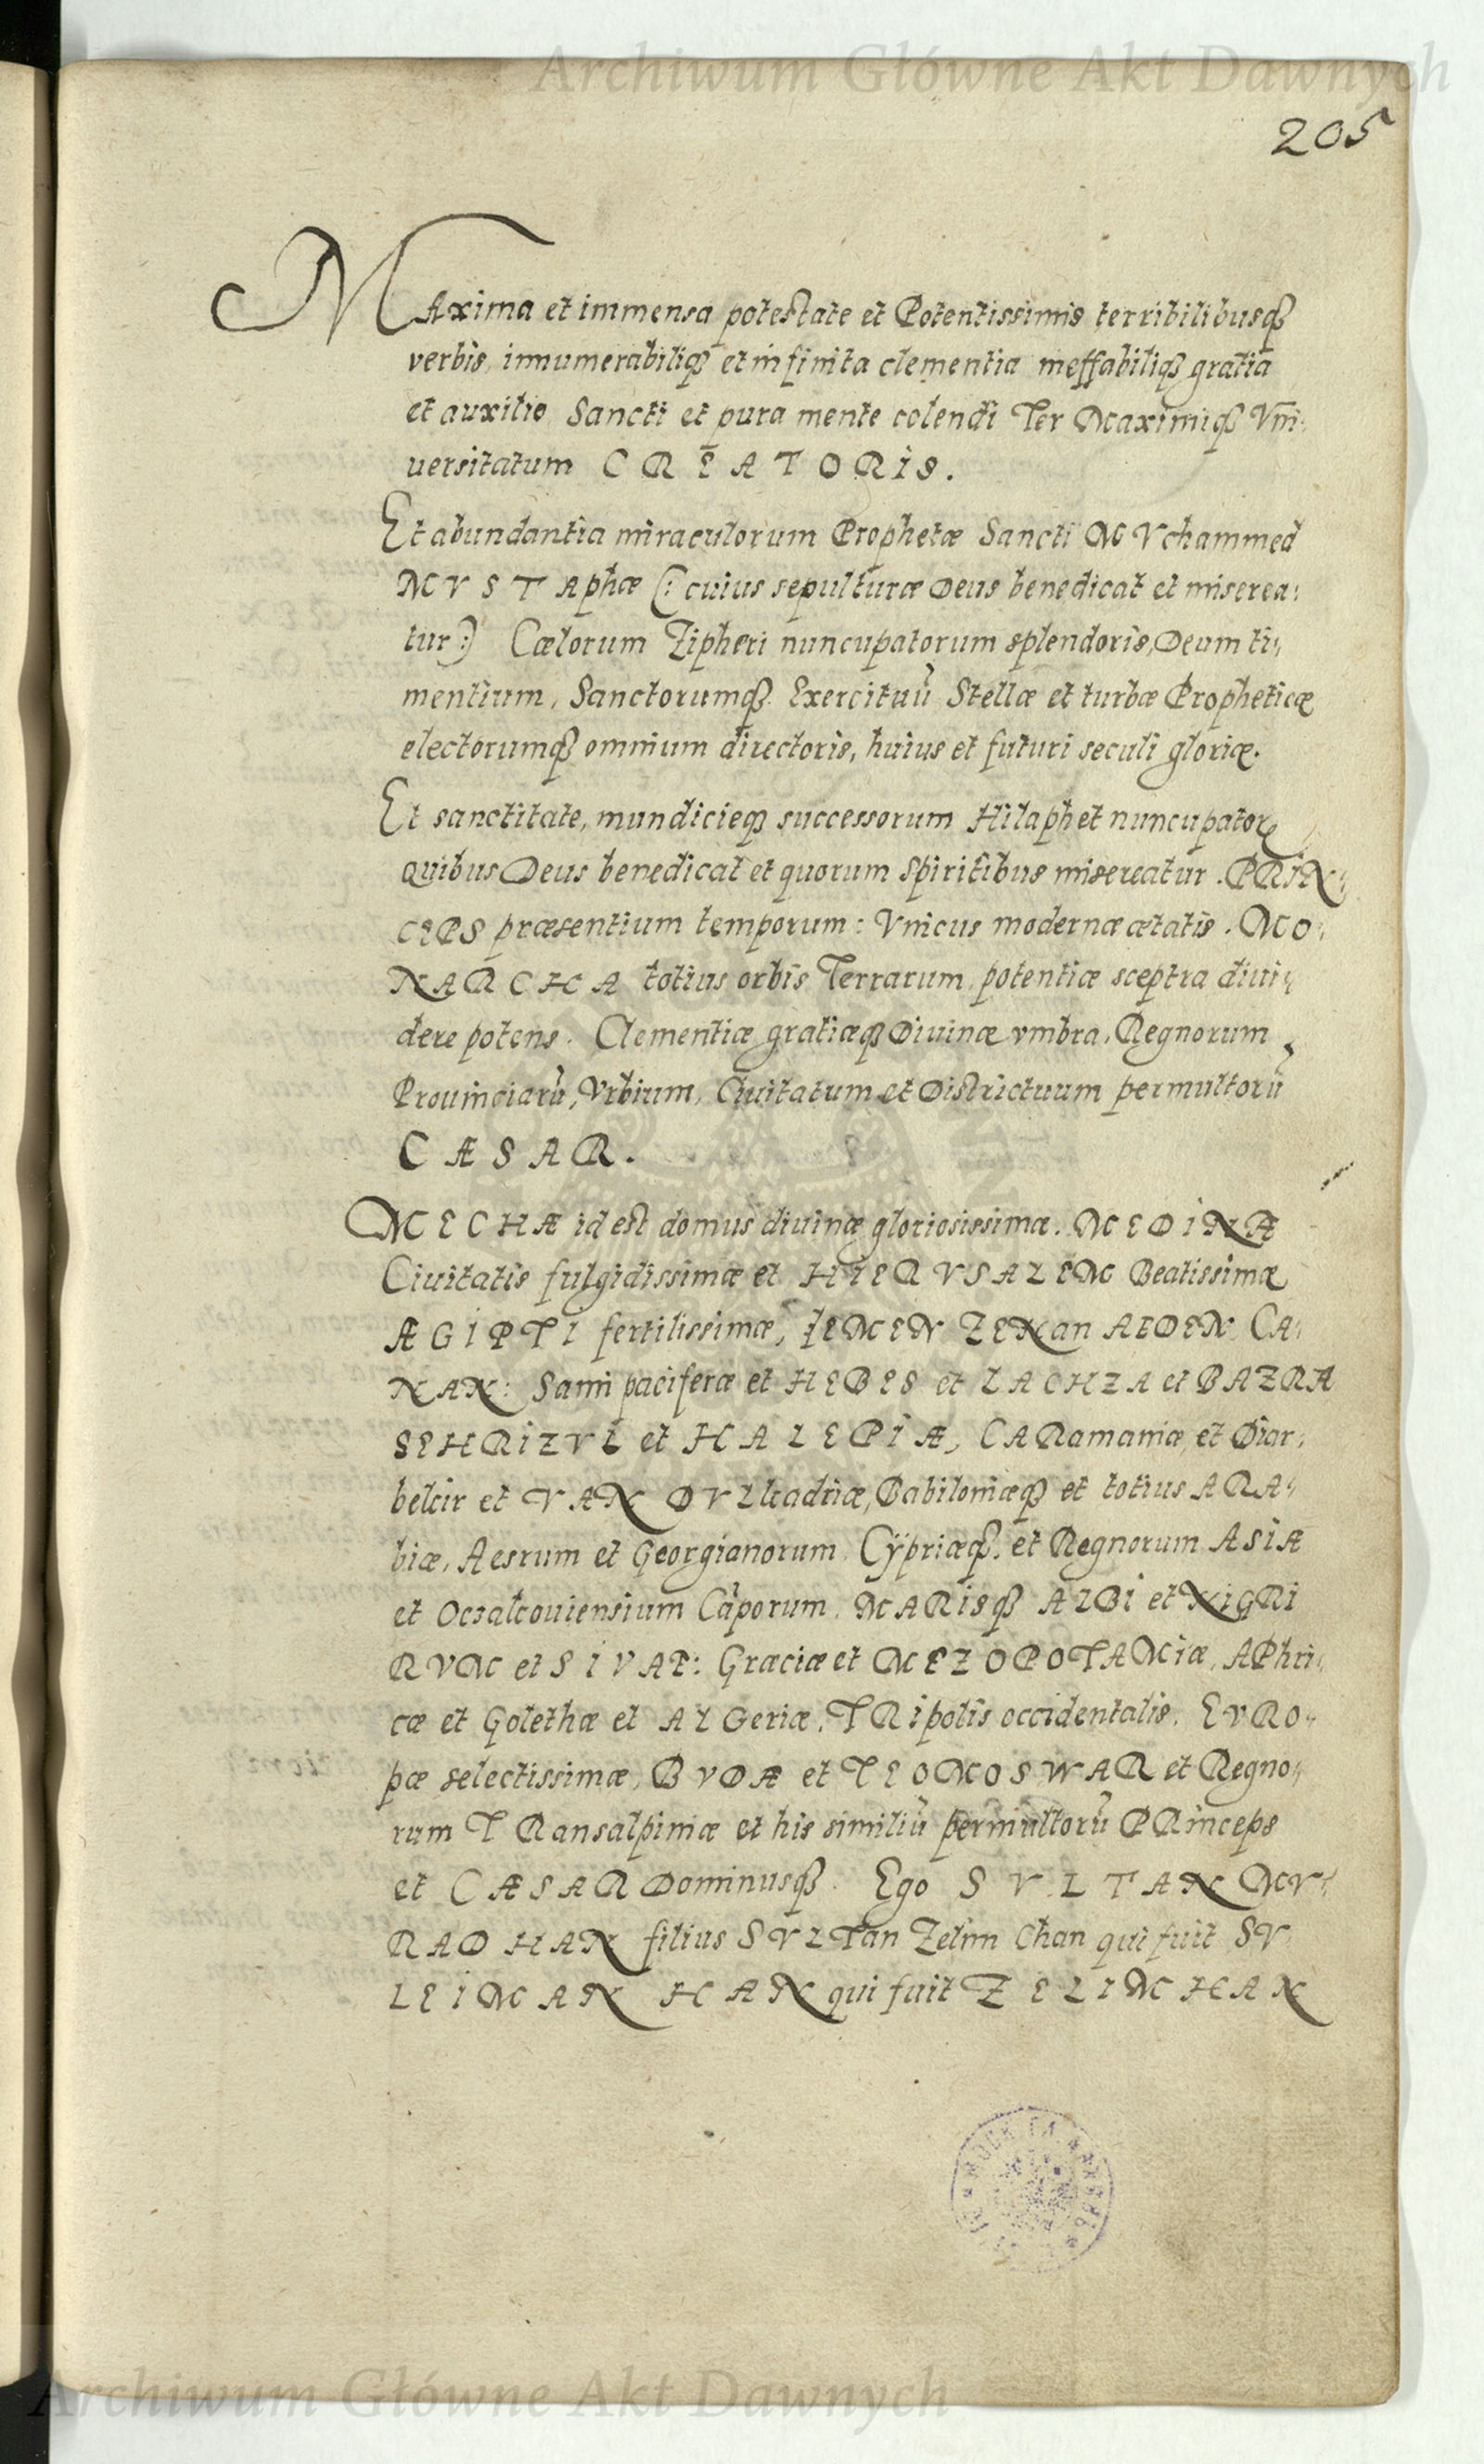 Archiwum Główne Akt Dawnych
205
MAxima et immensa potestate et Potentissimis terribilibusq;
verbis, innumerabiliq; et infinita clementia ineffabiliq; gratia
et auxilio Sancti et pura mente colendi Ter Maximiq; Vni:
uersitatum CREATORIS.
Et abundantia miraculorum Prophetæ Sancti MVchammed
MVSTAphæ (: cuius sepulturæ Deus benedicat et miserea:
tur :) Cælorum Zipheri nuncupatorum splendoris, Deum ti:
mentium, Sanctorumq; Exercituũ Stellæ et turbæ Propheticæ
electorumq; omnium directoris, huius et futuri seculi gloriæ.
Et sanctitate, mundicieq; successorum Hilaphet nuncupator
quibus Deus benedicat et quorum Spiritibus misereatur. PRIN:
CEPS præsentium temporum: Vnicus modernæ ætatis. MO:
NARCHA totius orbis Terrarum, potentiæ sceptra diui:
dere potens. Clementiæ gratiæq; Diuinæ vmbra, Regnorum
Prouinciarũ, Vrbium, Ciuitatum et Districtuum permultorũ
CÆSAR.
MECHÆ id est domus diuinæ gloriosissimæ. MEDINÆ
Ciuitatis fulgidissimæ et HIERVSALEM Beatissimæ
ÆGIPTI fertilissimæ, IEMEN ZENan AEDEN, CA:
NAN: Sami paciferæ et HEBES et LACHZA et BAZRA
SEHRIZVL et HALEPIÆ, CARamaniæ, et Diar:
bekir et VAN DVLkadriæ, Babiloniæq; et totius ARA:
biæ, Aesrum et Georgianorum, Cÿpriæq;. et Regnorum ASIÆ
et Oczakouiensium Cãporum, MARisq; ALBI et NIGRI
RVM et SIVAE: Græciæ et MEZOPOTAMIæ, APhri:
cæ et Golethæ et ALGeriæ. TRipolis occidentalis. EVRO:
pæ selectissimæ, BVDÆ et TEOMOSWAR et Regno:
rum TRansalpiniæ et his similiũ permultorũ PRinceps
et CÆSAR Dominusq;. Ego SVLTAN MV:
RAD HAN filius SVLTan Zelim Chan qui fuit SV
LEIMAN HAN qui fuit ZELIMCHAN
Archiwum Główne Akt Dawnych